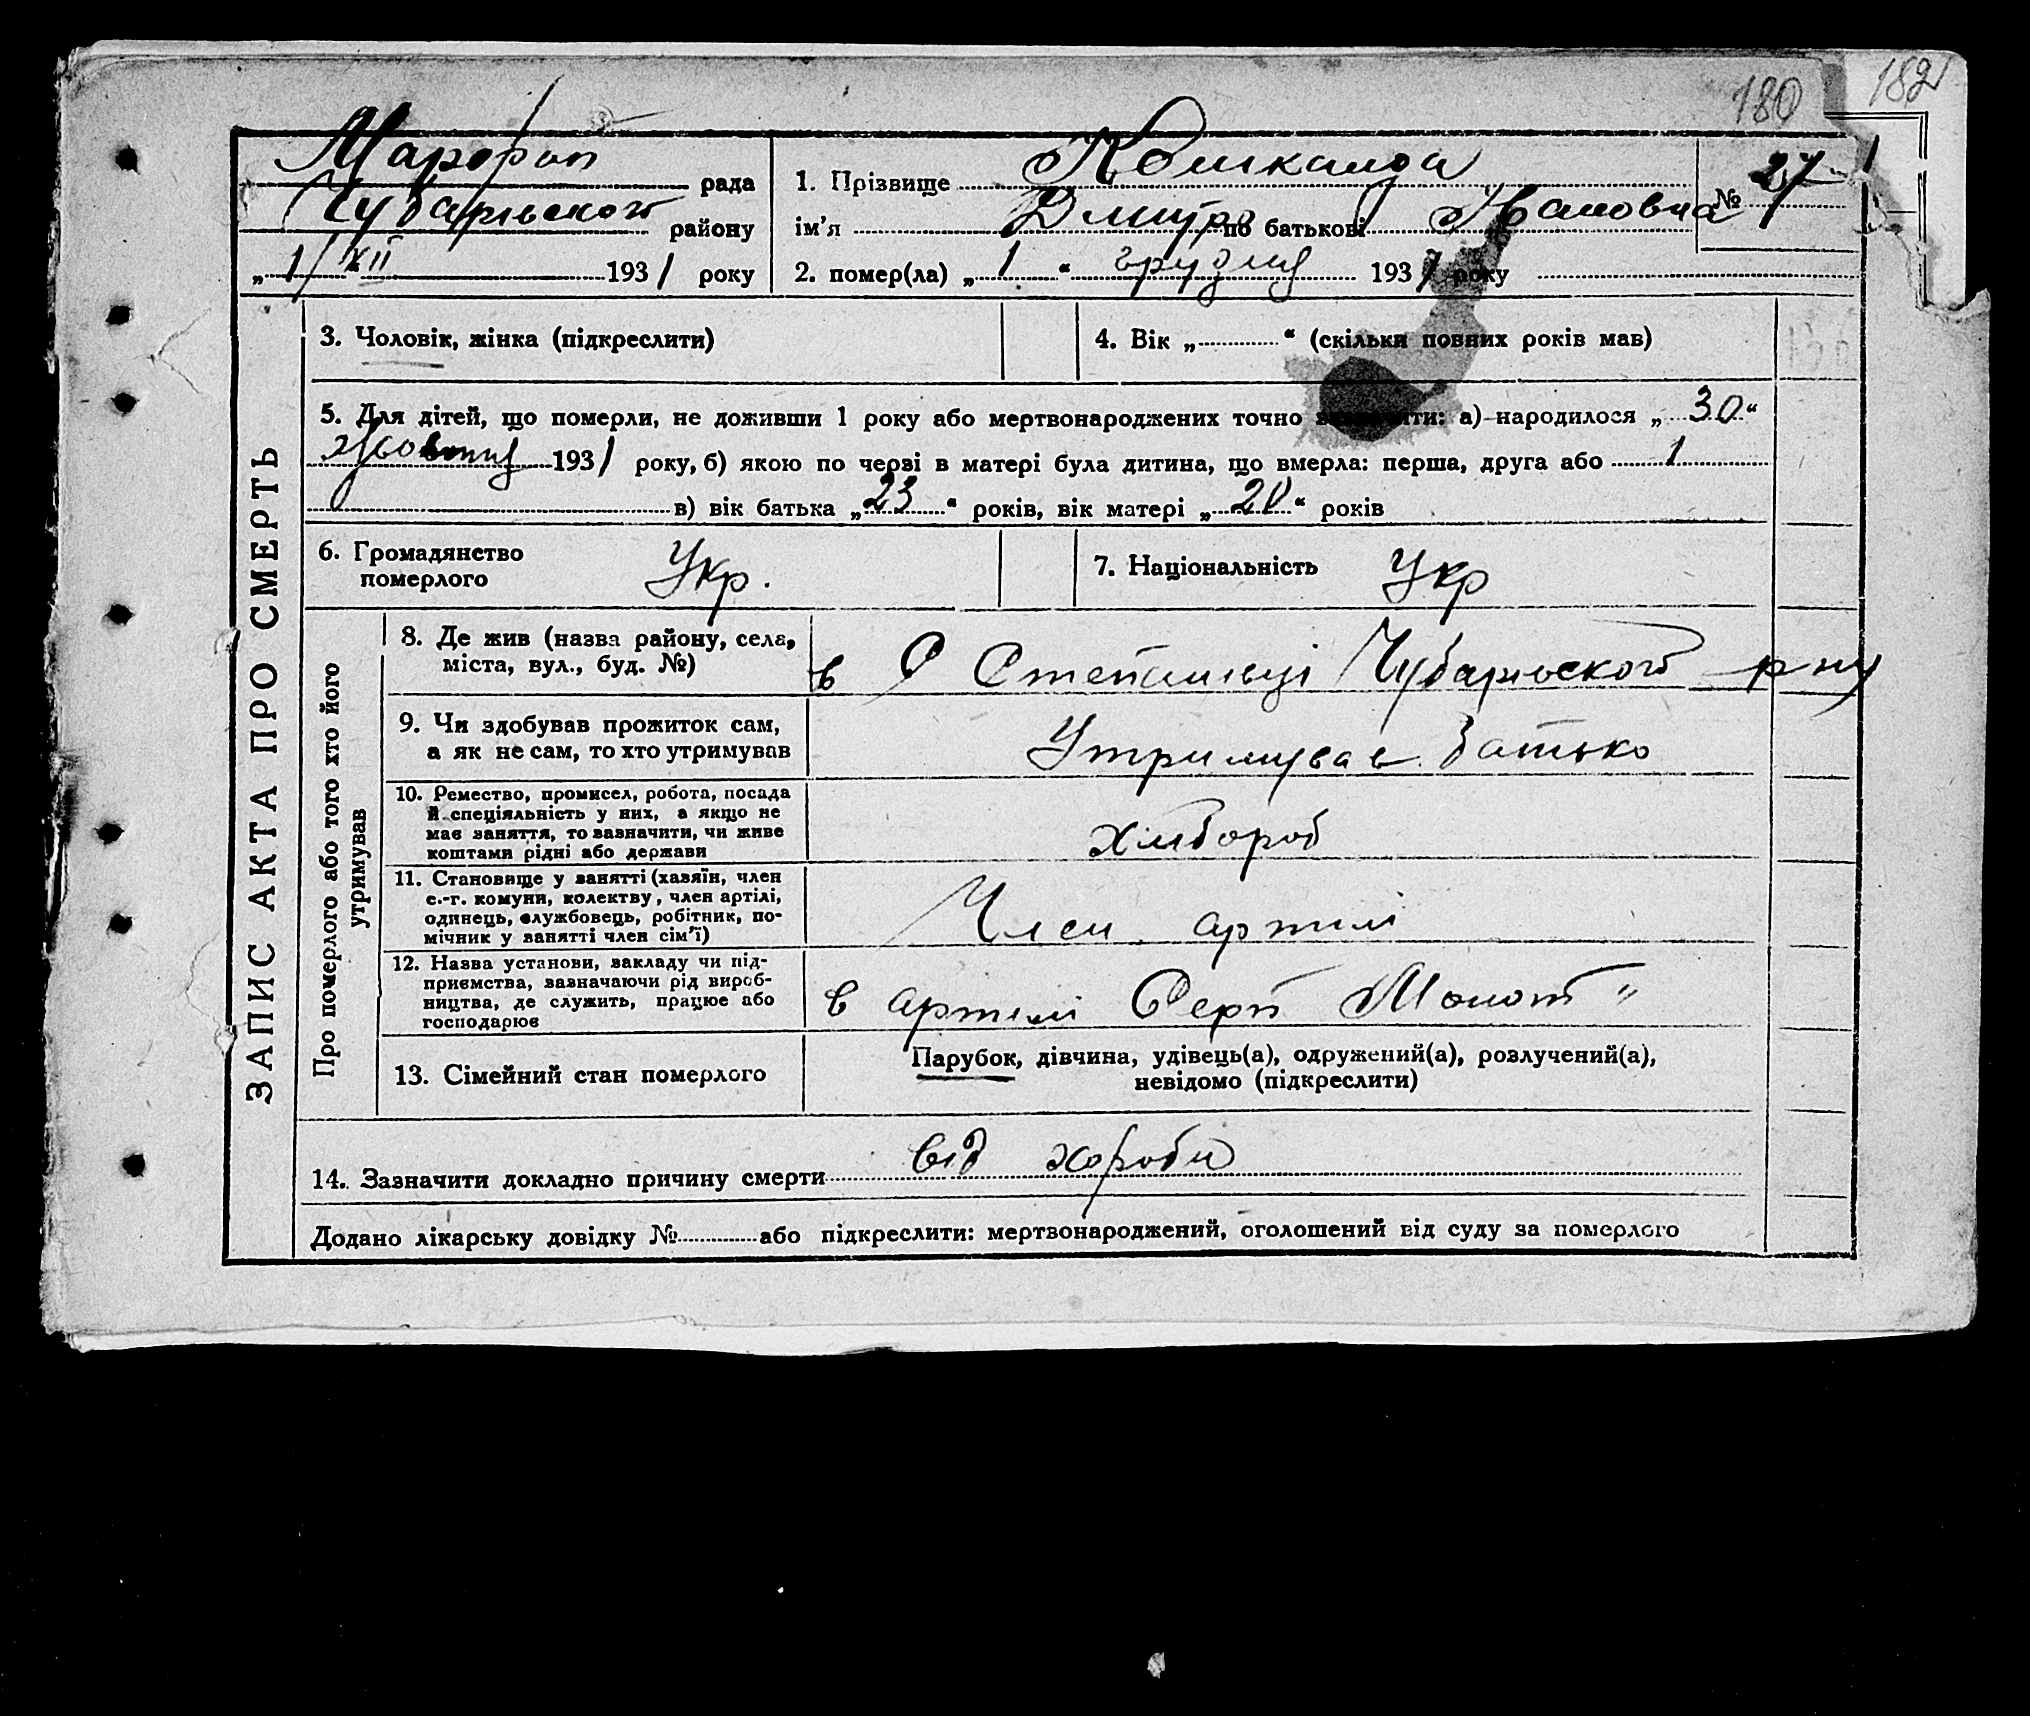 180
182
Марфоп рада
Чубарівського району
„ 1/XII 1931 року
1. Прізвище Кошкалда
№ 27
ім'я Дмитро по батькові Івановича
2. помер(ла) „ 1 “ грудня 1931 року
ЗАПИС АКТА ПРО СМЕРТЬ
3. Чоловік, жінка (підкреслити)
4. Вік „ “ (скільки повних років мав)
5. Для дітей, що померли, не доживши 1 року або мертвонароджених точно а) народилося „ 30 “
жовтня 1931 року, б) якою по черзі в матері була дитина, що вмерла: перша, друга або 1
в) вік батька „ 23 “ років, вік матері „ “ років
6. Громадянство
померлого Укр.
7. Національність Укр
Про померлого або того хто його
утримував
8. Де жив (назва району, села,
міста, вул., буд. №)
в С Степанівці Чубарівського р-ну
9. Чи здобував прожиток сам,
а як не сам, то хто утримував
Утримував батько
10. Ремество, промисел, робота, посада
й спеціяльність у них, а якщо не
має заняття, то зазначити, чи живе
коштами рідні або держави
хлібороб
11. Становище у занятті (хазяїн, член
с.-г. комуни, колективу, член артілі,
одинець, службовець, робітник, по-
мічник у занятті член сім'ї)
Член артілі
12. Назва установи, закладу чи під-
приємства, зазначаючи рід вироб-
ництва, де служить, працює або
господарює
в артілі Серп Молот "
13. Сімейний стан померлого
Парубок, дівчина, удівець(а), одружений(а), розлучений(а),
невідомо (підкреслити)
14. Зазначити докладно причину смерти від хороби
Додано лікарську довідку № або підкреслити: мертвонароджений, оголошений від суду за померлого